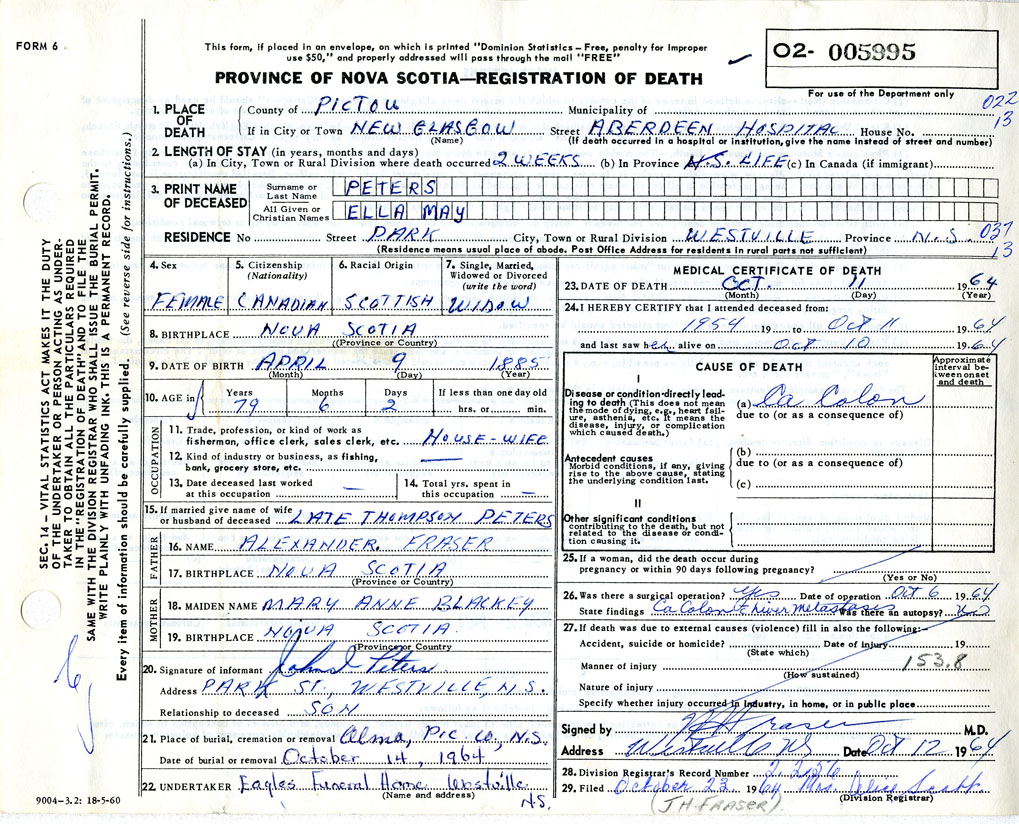 FORM 6
This form, if placed in an envelope, on which is printed "Dominion Statistics – Free, penalty for improper
use $50," and properly addressed will pass through the mail "FREE"
PROVINCE OF NOVA SCOTIA—REGISTRATION OF DEATH
02- 005995
For use of the Department only
022
13
1. PLACE OF DEATH
County of PICTOU Municipality of
If in City or Town NEW GLASGOW Street ABERDEEN HOSPITAL House No.
(Name) (If death occurred in a hospital or institution, give the name instead of street and number)
2. LENGTH OF STAY (in years, months and days)
(a) In City, Town or Rural Division where death occurred 2 WEEKS (b) In Province N.S. LIFE (c) In Canada (if immigrant)
3. PRINT NAME OF DECEASED
Surname or Last Name PETERS
All Given or Christian Names ELLA MAY
RESIDENCE No Street PARK City, Town or Rural Division WESTVILLE Province N.S.
037
13
(Residence means usual place of abode. Post Office Address for residents in rural parts not sufficient)
4. Sex FEMALE
5. Citizenship (Nationality) CANADIAN
6. Racial Origin SCOTTISH
7. Single, Married, Widowed or Divorced (write the word) WIDOW
8. BIRTHPLACE NOVA SCOTIA
(Province or Country)
9. DATE OF BIRTH APRIL 9 1885
(Month) (Day) (Year)
10. AGE in Years Months Days If less than one day old
79 6 2 hrs. or min.
OCCUPATION
11. Trade, profession, or kind of work as
fisherman, office clerk, sales clerk, etc. HOUSE-WIFE
12. Kind of industry or business, as fishing,
bank, grocery store, etc. —
13. Date deceased last worked
at this occupation —
14. Total yrs. spent in
this occupation —
15. If married give name of wife
or husband of deceased LATE THOMPSON PETERS
FATHER
16. NAME ALEXANDER. FRASER
17. BIRTHPLACE NOVA SCOTIA
(Province or Country)
MOTHER
18. MAIDEN NAME MARY ANNE BLACKEY
19. BIRTHPLACE NOVA SCOTIA.
(Province or Country)
20. Signature of informant John Peters
Address PARK ST., WESTVILLE, N.S.
Relationship to deceased SON
21. Place of burial, cremation or removal Alma, Pic. Co, N.S.
Date of burial or removal October 14, 1964
22. UNDERTAKER Eagles Funeral Home Westville
(Name and address) N.S.
MEDICAL CERTIFICATE OF DEATH
23. DATE OF DEATH OCT. 11 1964
(Month) (Day) (Year)
24. I HEREBY CERTIFY that I attended deceased from:
1954 19 to Oct 11 1964
and last saw her alive on Oct 10 1964
CAUSE OF DEATH
Approximate interval between onset and death
I
Disease or condition directly leading to death (This does not mean
the mode of dying, e.g., heart failure, asthenia, etc. It means the
disease, injury, or complication
which caused death.)
(a) Ca Colon
due to (or as a consequence of)
Antecedent causes
Morbid conditions, if any, giving
rise to the above cause, stating
the underlying condition last.
(b)
due to (or as a consequence of)
(c)
II
Other significant conditions
contributing to the death, but not
related to the disease or condition causing it.
25. If a woman, did the death occur during
pregnancy or within 90 days following pregnancy?
(Yes or No)
26. Was there a surgical operation? Yes Date of operation Oct 6 1964
State findings Ca Colon Liver metastases Was there an autopsy? No
27. If death was due to external causes (violence) fill in also the following:—
Accident, suicide or homicide? Date of injury 19
(State which)
Manner of injury 153.8
(How sustained)
Nature of injury
Specify whether injury occurred in industry, in home, or in public place
Signed by Fraser M.D.
Address Westville NS Date Oct 12 1964
28. Division Registrar's Record Number
29. Filed October 22 1964 Mrs.
(J.H. FRASER) (Division Registrar)
SEC. 14 – VITAL STATISTICS ACT MAKES IT THE DUTY
OF THE UNDERTAKER OR PERSON ACTING AS UNDERTAKER TO OBTAIN ALL THE PARTICULARS REQUIRED
IN THE "REGISTRATION OF DEATH" AND TO FILE THE
SAME WITH THE DIVISION REGISTRAR WHO SHALL ISSUE THE BURIAL PERMIT.
WRITE PLAINLY WITH UNFADING INK. THIS IS A PERMANENT RECORD.
Every item of information should be carefully supplied. (See reverse side for instructions.)
9004-3.2: 18-5-60